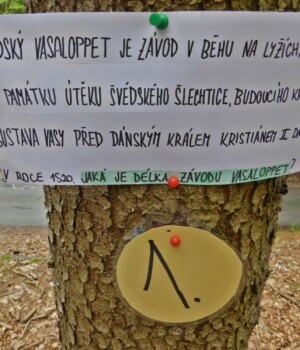 DSKÝ VASALOPPET JE ZÁVOD V BĚHU NA LYŽÍCH
PAMÁTKU ÚTĚKU ŠVÉDSKÉHO ŠLECHTICE, BUDOUCÍHO K
USTAVA VASY PŘED DÁNSKÝM KRÁLEM KRISTIÁNEM II. DÁ
V ROCE 1520. JAKÁ JE DÉLKA ZÁVODU VASALOPPET?
1.